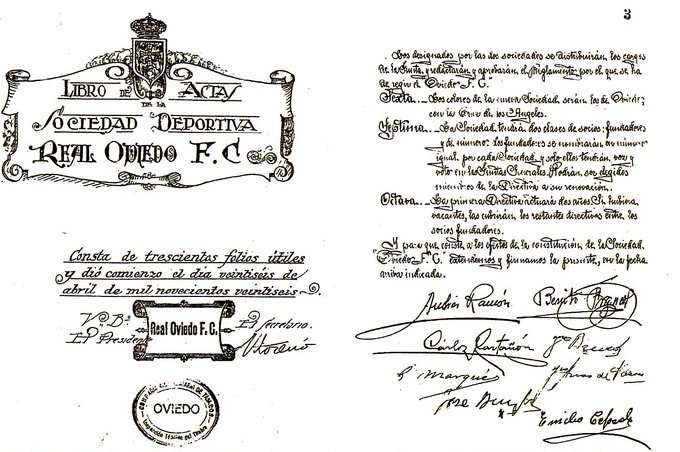 LIBRO DE ACTAS
DE LA
SOCIEDAD DEPORTIVA
REAL OVIEDO F.C
Consta de trescientos folios útiles
y dió comienzo el día veintiséis de
abril de mil novecientos veintiseis
Vº Bº
El Presidente
Real Oviedo F.C.
El Secretario.
OVIEDO
3
Los designados por las dos sociedades se distribuirán, los cargos
de la Junta, y redactarán y aprobarán, el Reglamento, por el que se ha
de regir el Oviedo F.C.
Sexta.— Los colores de la nueva Sociedad, serán los de Oviedo,
con la Cruz de los Angeles.
Séptima.— La Sociedad, tendrá dos clases de socios; fundadores
y de número. Los fundadores se nombrarán en número
igual, por cada Sociedad, y solo ellos tendrán, voz y
voto en las Juntas Generales. Podrán, ser elegidos
miembros de la Directiva a su renovación.
Octava.— La primera Directiva actuará dos años. Si hubiera
vacantes, las cubrirán, los restantes directivos entre, los
socios fundadores.
Y para que conste, a los efectos de la constitución, de la Sociedad,
Oviedo F.C. extendemos y firmamos la presente, en la fecha
arriba indicada.
Ramón
Benito
Carlos
José
Emilio